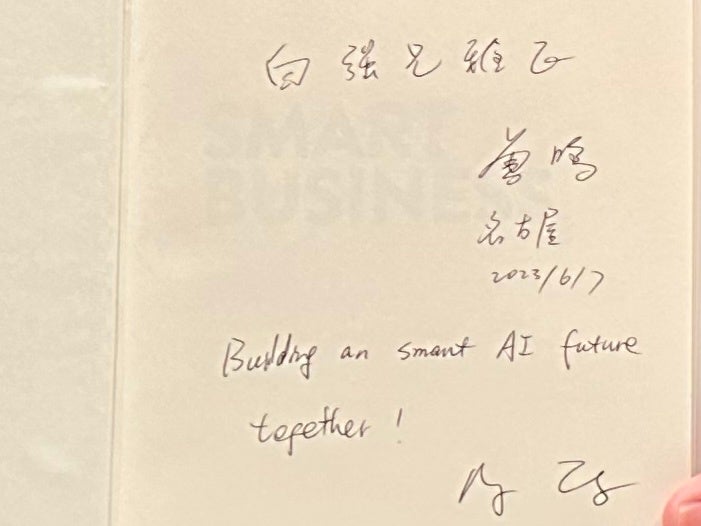 白强兄雅正
SMART
曾鸣
BUSINESS
名古屋
2023/6/7
Building an smart AI future
together!